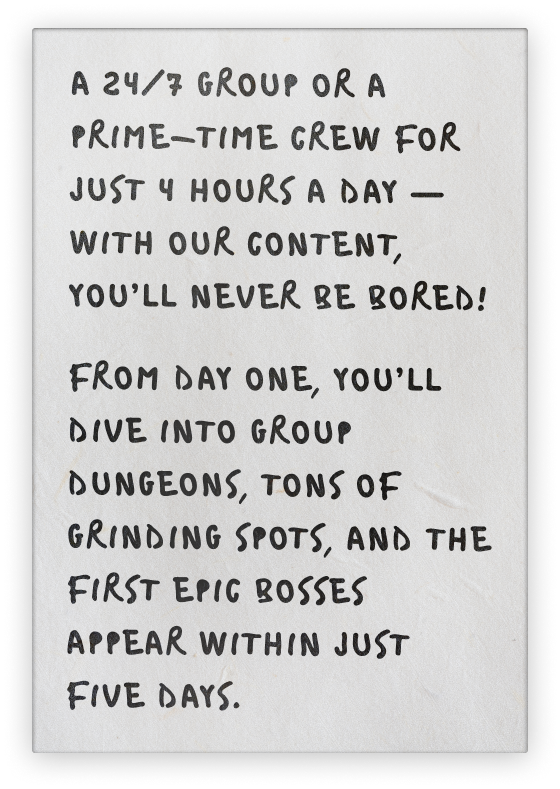 A 24/7 GROUP OR A
PRIME–TIME CREW FOR
JUST 4 HOURS A DAY —
WITH OUR CONTENT,
YOU'LL NEVER BE BORED!
FROM DAY ONE, YOU'LL
DIVE INTO GROUP
DUNGEONS, TONS OF
GRINDING SPOTS, AND THE
FIRST EPIC BOSSES
APPEAR WITHIN JUST
FIVE DAYS.